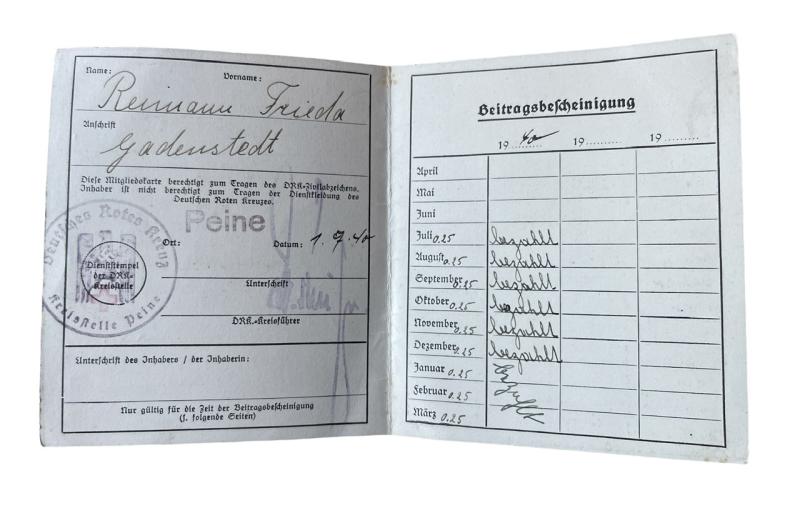 Name: Vorname:
Reimann Frieda
Anschrift
Gadenstedt
Diese Mitgliedskarte berechtigt zum Tragen des DRK-Zivilabzeichens.
Inhaber ist nicht berechtigt zum Tragen der Dienstkleidung des
Deutschen Roten Kreuzes.
Peine
Ort: Datum: 1. 7. 40
Deutsches Rotes Kreuz
Kreisstelle Peine
Dienststempel
der DRK-
Kreisstelle
Unterschrift
DRK-Kreisführer
Unterschrift des Inhabers / der Inhaberin:
Nur gültig für die Zeit der Beitragsbescheinigung
(s. folgende Seiten)
Beitragsbescheinigung
19 40 19 19
April
Mai
Juni
Juli 0.25 bezahlt
August 0.25 bezahlt
September 0.25 bezahlt
Oktober 0.25 bezahlt
November 0.25 bezahlt
Dezember 0.25 bezahlt
Januar 0.25
Februar 0.25
März 0.25